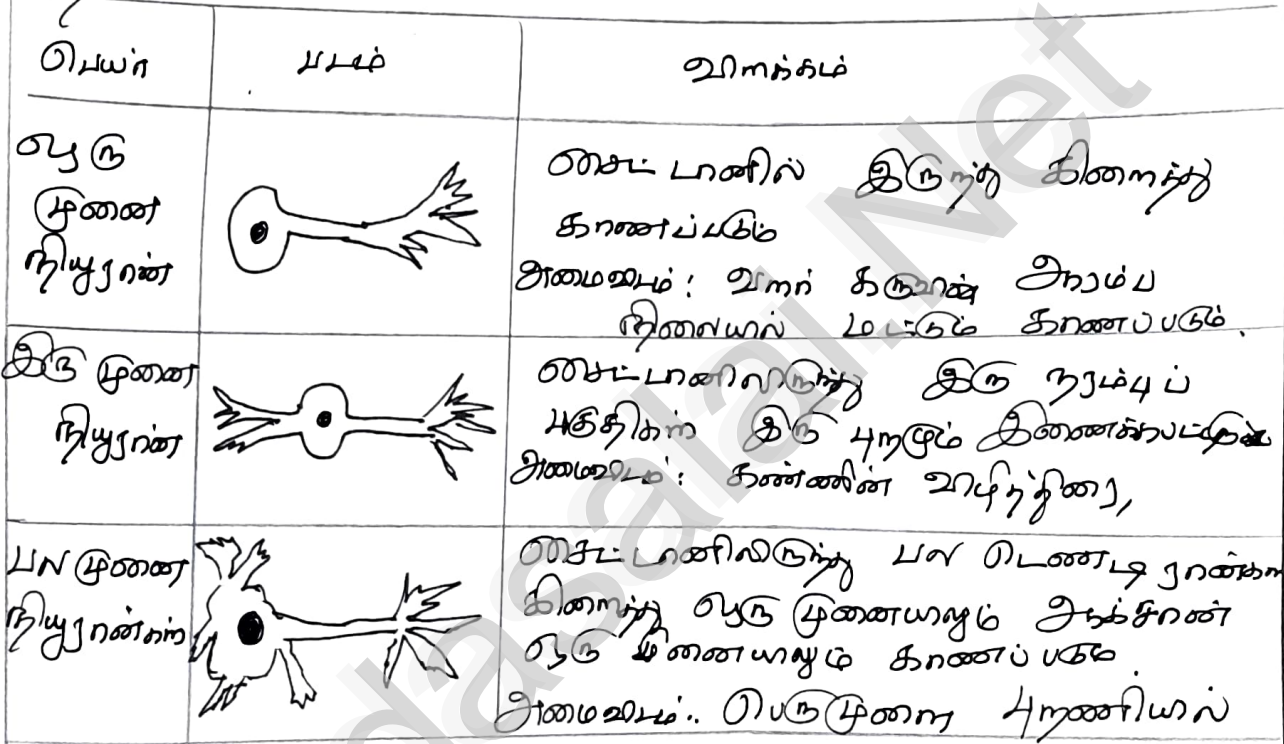 பெயர் படம் விளக்கம்
ஒரு
முனை
நியூரான்
சைட்டானில் இருந்து கிளைந்து
காணப்படும்
அமைவிடம்: வளர் கருவின் ஆரம்ப
நிலையில் மட்டும் காணப்படும்.
இரு முனை
நியூரான்
சைட்டானிலிருந்து இரு நரம்புப்
பகுதிகள் இரு புறமும்
அமைவிடம்: கண்ணின் விழித்திரை,
பல முனை
நியூரான்கள்
சைட்டானிலிருந்து பல டெண்டிரான்கள்
கிளைந்து ஒரு முனையாலும் ஆக்சான்
ஒரு முனையாலும் காணப்படும்
அமைவிடம்: பெருமூளை புறணியில்
dasalai.Net